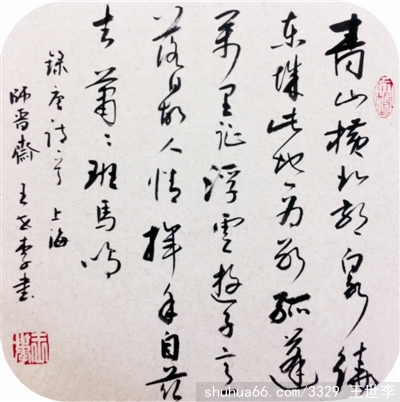 青山横北郭白水绕
东城此地一为别孤蓬
万里征浮雲游子意
落日故人情挥手自兹
去萧〻班马鸣
录唐诗一首 上海
师晋斋 王世李书
shuhua66.com/3329 王世李